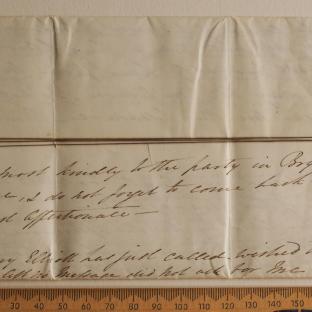 most kindly to the party in Bry
e, & do not forget to come back
affectionate —
Elliott has just called. wished
message did not ask for me
30 40 50 60 70 80 90 100 110 120 130 140 150